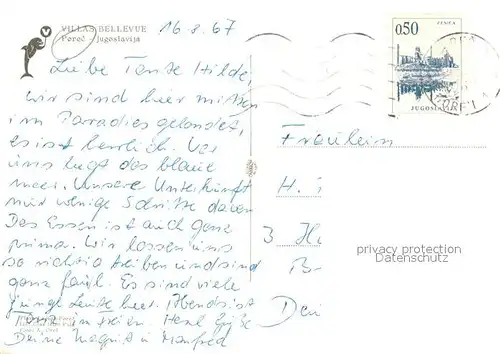 VILLAS BELLEVUE
Poreč - Jugoslavija
16.8.67
Liebe Tante Hilde,
wir sind hier mitten
im Paradies gelandet,
es ist herrlich. Vor
uns liegt das blaue
Meer. Unsere Unterkunft
nur wenige Schritte davon
Das Essen ist auch ganz
prima. Wir lassen uns
so richtig treiben und sind
ganz faul. Es sind viele
junge Leute hier. Abends ist
Tanz im Freien. Herzl. Grüße
Deine Magrit u. Manfred
0,50
ZENICA
JUGOSLAVIJA
Fräulein
H.
3 H
B
Deu
privacy protection
Datenschutz